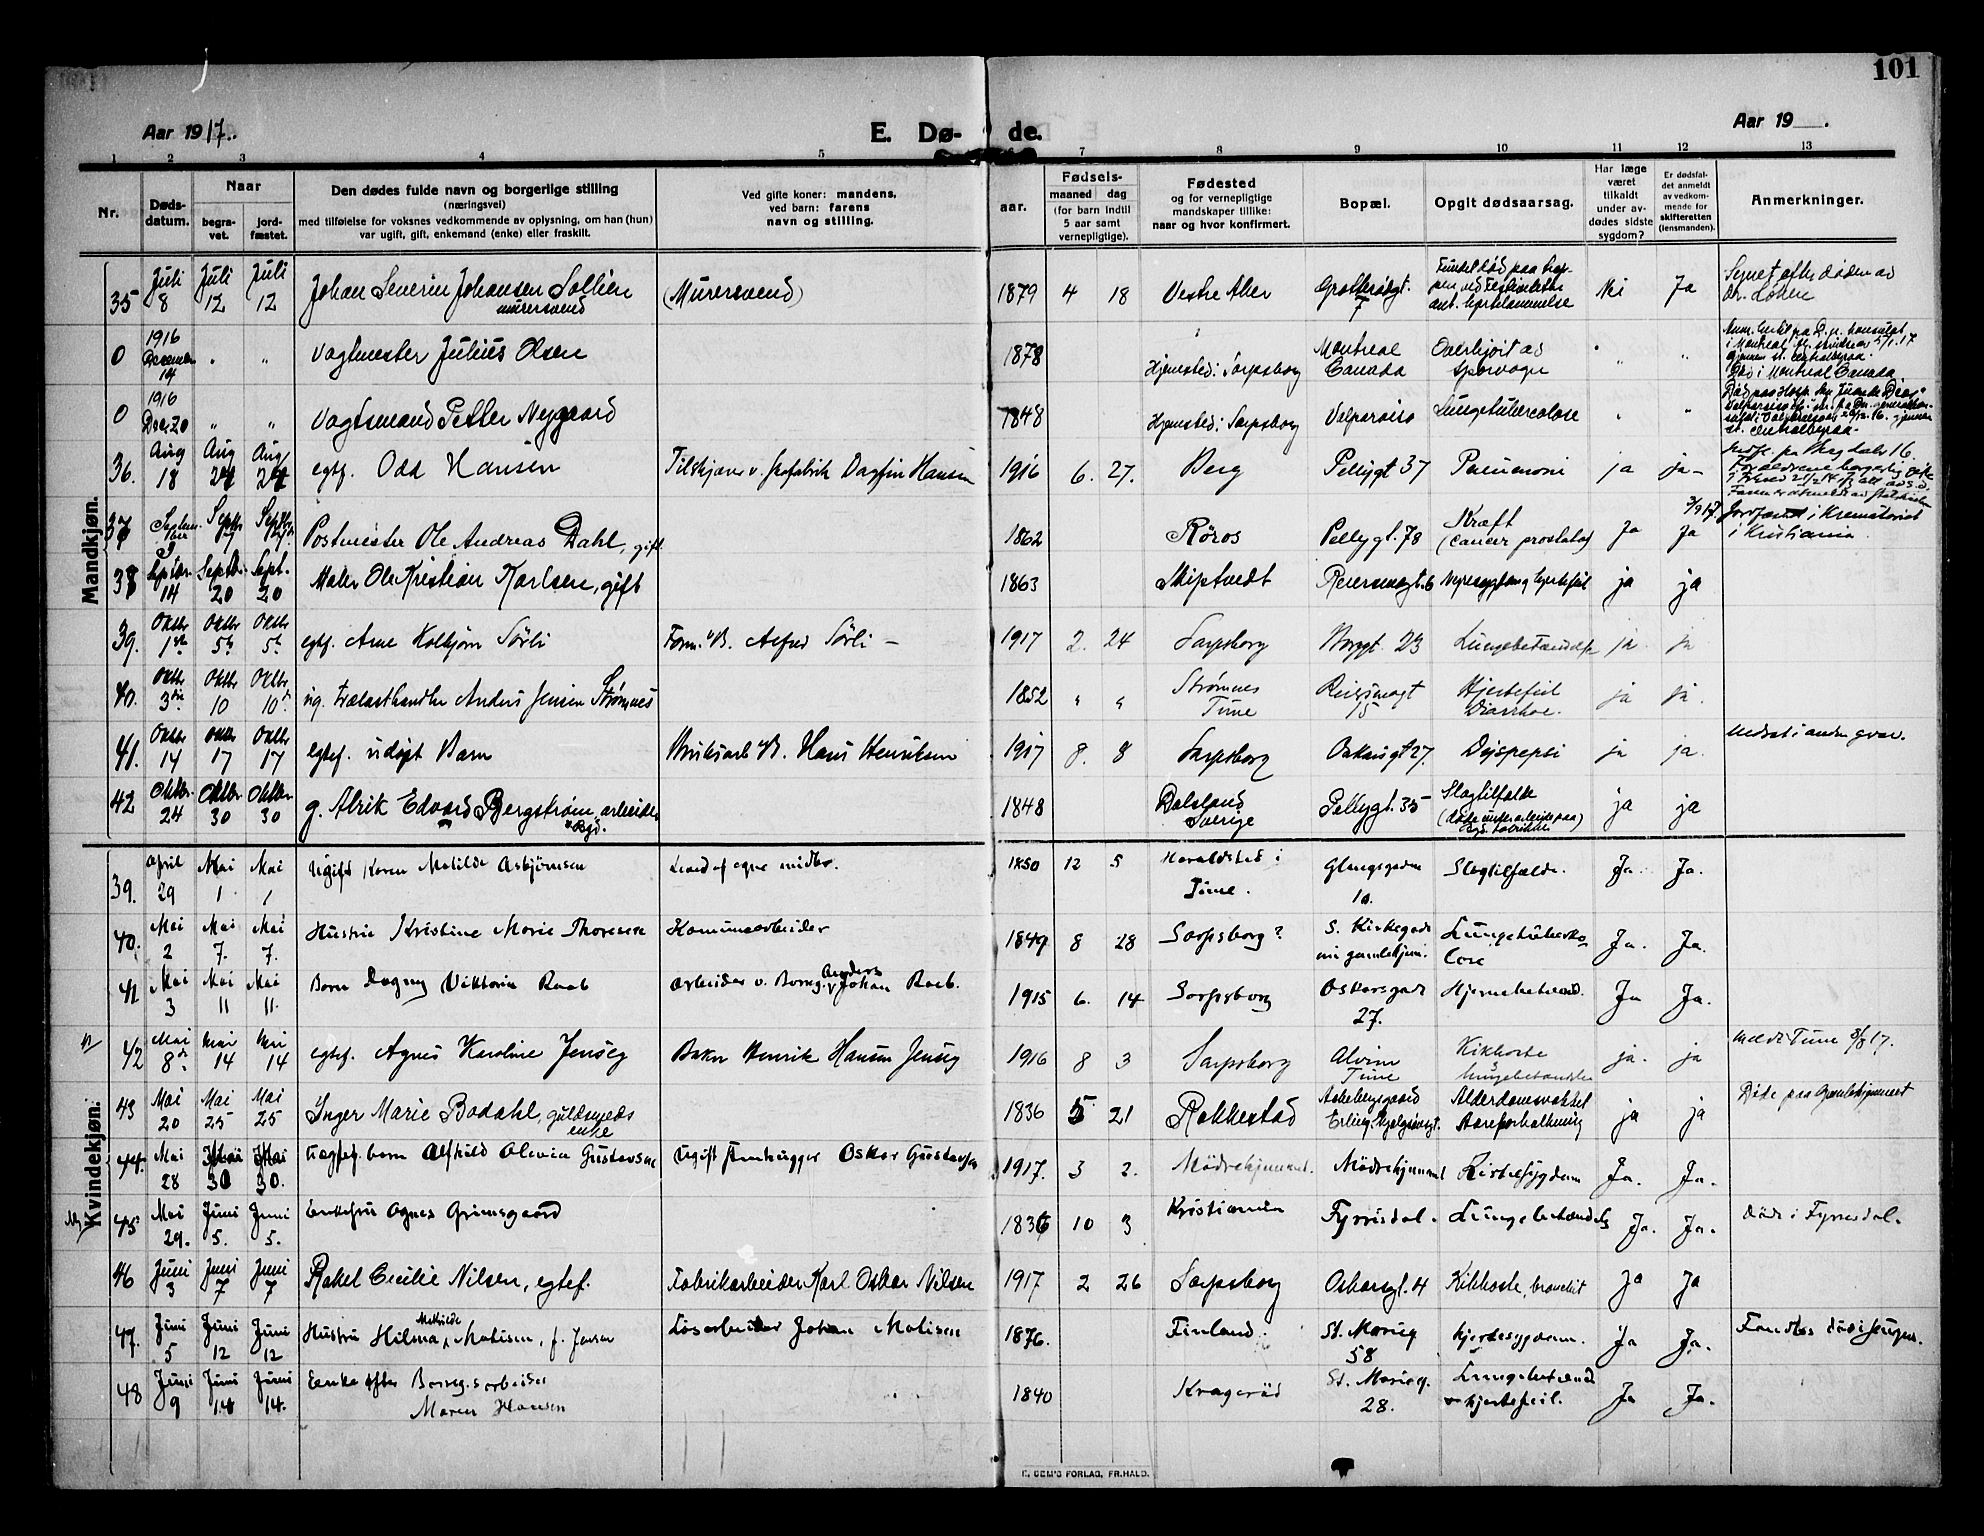 101
Aar 1917.
E. Dø-
de.
Aar 19 .
1 2 3 4 5 7 8 9 10 11 12 13
Nr.
Døds-
datum.
Naar
begra-
vet.
jord-
fæstet.
Den dødes fulde navn og borgerlige stilling
(næringsvei)
med tilføielse for voksnes vedkommende av oplysning, om han (hun)
var ugift, gift, enkemand (enke) eller fraskilt.
Ved gifte koner: mandens,
ved barn: farens
navn og stilling.
Fødsels-
aar.
maaned dag
(for barn indtil
5 aar samt
vernepligtige).
Fødested
og for vernepligtige
mandskaper tillike:
naar og hvor konfirmert.
Bopæl.
Opgit dødsaarsag.
Har læge
været
tilkaldt
under av-
dødes sidste
sygdom?
Er dødsfal-
det anmeldt
av vedkom-
mende for
skifteretten
(lensmanden).
Anmerkninger.
Mandkjøn.
35 Juli 8 Juli 12 Juli 12 Johan Severin Johansen Sollien murersvend (Murersvend) 1879 4 18 Vestre Aker 7 Nei Ja
0 1916 December 14 " " Vagtmester Julius Olsen 1878 Hjemsted: Sarpsborg Montreal Canada Overkjørt av sporvogn " Død i Montreal Canada.
0 1916 Dec. 20 " " Vagtsmand Petter Nygaard 1848 Hjemsted: Sarpsborg Valparaiso Lungetuberculose "
36. Aug 18 Aug 24 Aug 24 egtf. Odd Hansen Tilskjærer v. skofabrik Dagfin Hansen 1916 6. 27. Berg Pellygt 37 Pneumoni ja ja
37 Septem- ber Septbr 7 Septbr Postmester Ole Andreas Dahl, gift 1862 Røros Pellygt. 78 Kræft (cancer prostatae) Ja 3/9 17 Ja i Krematoriet i Kristiania.
38 Septbr. 14 Septbr. 20 Sept. 20 Maler Ole Kristian Karlsen, gift 1863 Skiptvedt Reiersensgt. 6 ja ja
39. Oktbr 1ste Oktbr 5te Oktbr 5te egtf. Arne Kolbjørn Sørli Form. v. B. Alfred Sørli - 1917 2. 24 Sarpsborg Borggt. 23 Lungebetændelse ja ja
40. Oktbr 3die Oktbr 10 Oktbr 10de ug. trælasthandler Anders Jensen Strømnes 1852 " " Strømnes Tune 15 Hjertefeil Diarrhoe. ja ja.
41. Oktbr 14 Oktbr 17 Oktbr 17 egtef. udøpt Barn Bruksarb. v. B. Hans Henriksen 1917 8. 8 Sarpsborg Oskarsgt 27. Dyspepsi ja ja. Nedsat i anden grav.
42 Oktbr. 24 Oktbr. 30 Oktbr. 30 g. Alrik Edvard Bergstrøm, arbeider v. Bgd. 1848 Dalsland Sverige Pellygt. 35 Slagtilfælde ja ja
Kvindekjøn.
39. April 29 Mai 1 Mai 1 Ugift Karen Matilde Asbjørnsen Leved af egne midler. 1850 12 5 Haraldsted i Tune. Glengsgaden 10. Slagtilfælde. Ja. Ja.
40. Mai 2 Mai 7. Mai 7. Hustru Kristine Marie Thoresen Komunearbeider 1849 8 28 Sarpsborg? S. Kirkegade nr. gamlehjem. Lungetuberku- lose Ja. Ja.
41 Mai 3 Mai 11 Mai 11. Barn Dagny Viktoria Raab Arbeider v. Borreg. Anders Johan Raab. 1915 6. 14 Sarpsborg Oskarsgade 27. Hjernebetænd. Ja Ja.
42 Mai 8de Mai 14 Mai 14 egtef. Agnes Karoline Jenseg Baker Henrik Hansen Jenseg 1916 8 3 Sarpsborg Alvim Tune Kikhoste lungebetændelse ja. ja Meldt Tune 8/8 17.
43 Mai 20 Mai 25 Mai 25 Inger Marie Bodahl, guldsmeds enke 1836 5 21 Rakkestad Alderdomssvækkel Aareforkalkning ja ja Døde paa Gamlehjemmet
44. Mai 28 Mai 30 Mai 30. Uægtef. barn Alfhild Olevia Gustavsen Ugift stenhugger Oskar Gustavsen 1917. 3 2. Mødrehjemmet. Mødrehjemmet Ja. Ja.
45 Mai 29. Juni 5. Juni 5. Enkefru Agnes Grimsgaard 1836 10 3 Kristiania Fyrresdal. Lungebetændelse Ja. Ja. Død i Fyrresdal.
46 Juni 3 Juni 7 Juni 7 Rakel Cecilie Nilsen, egtef. Fabrikarbeider Karl Oskar Nilsen 1917 2 26 Sarpsborg Oskarsgt. 4 Kikhoste, bronchit Ja Ja
47. Juni 5 Juni 12 Juni 12 Hustru Hilma Mathilde Matisen, f. Jensen Løsarbeider Johan Matisen 1876. Finland. St. Marieg 58 hjertesygdom. Ja Ja. Fandtes død i sengen.
48 Juni 9 Juni 14 Juni 14. Enke efter Borreg.sarbeider Maren Hansen 1840 Kragerød St. Marieg. 28. Lungebetænd + hjertefeil. Ja Ja.
E. SEM'S FORLAG, FR.HALD.